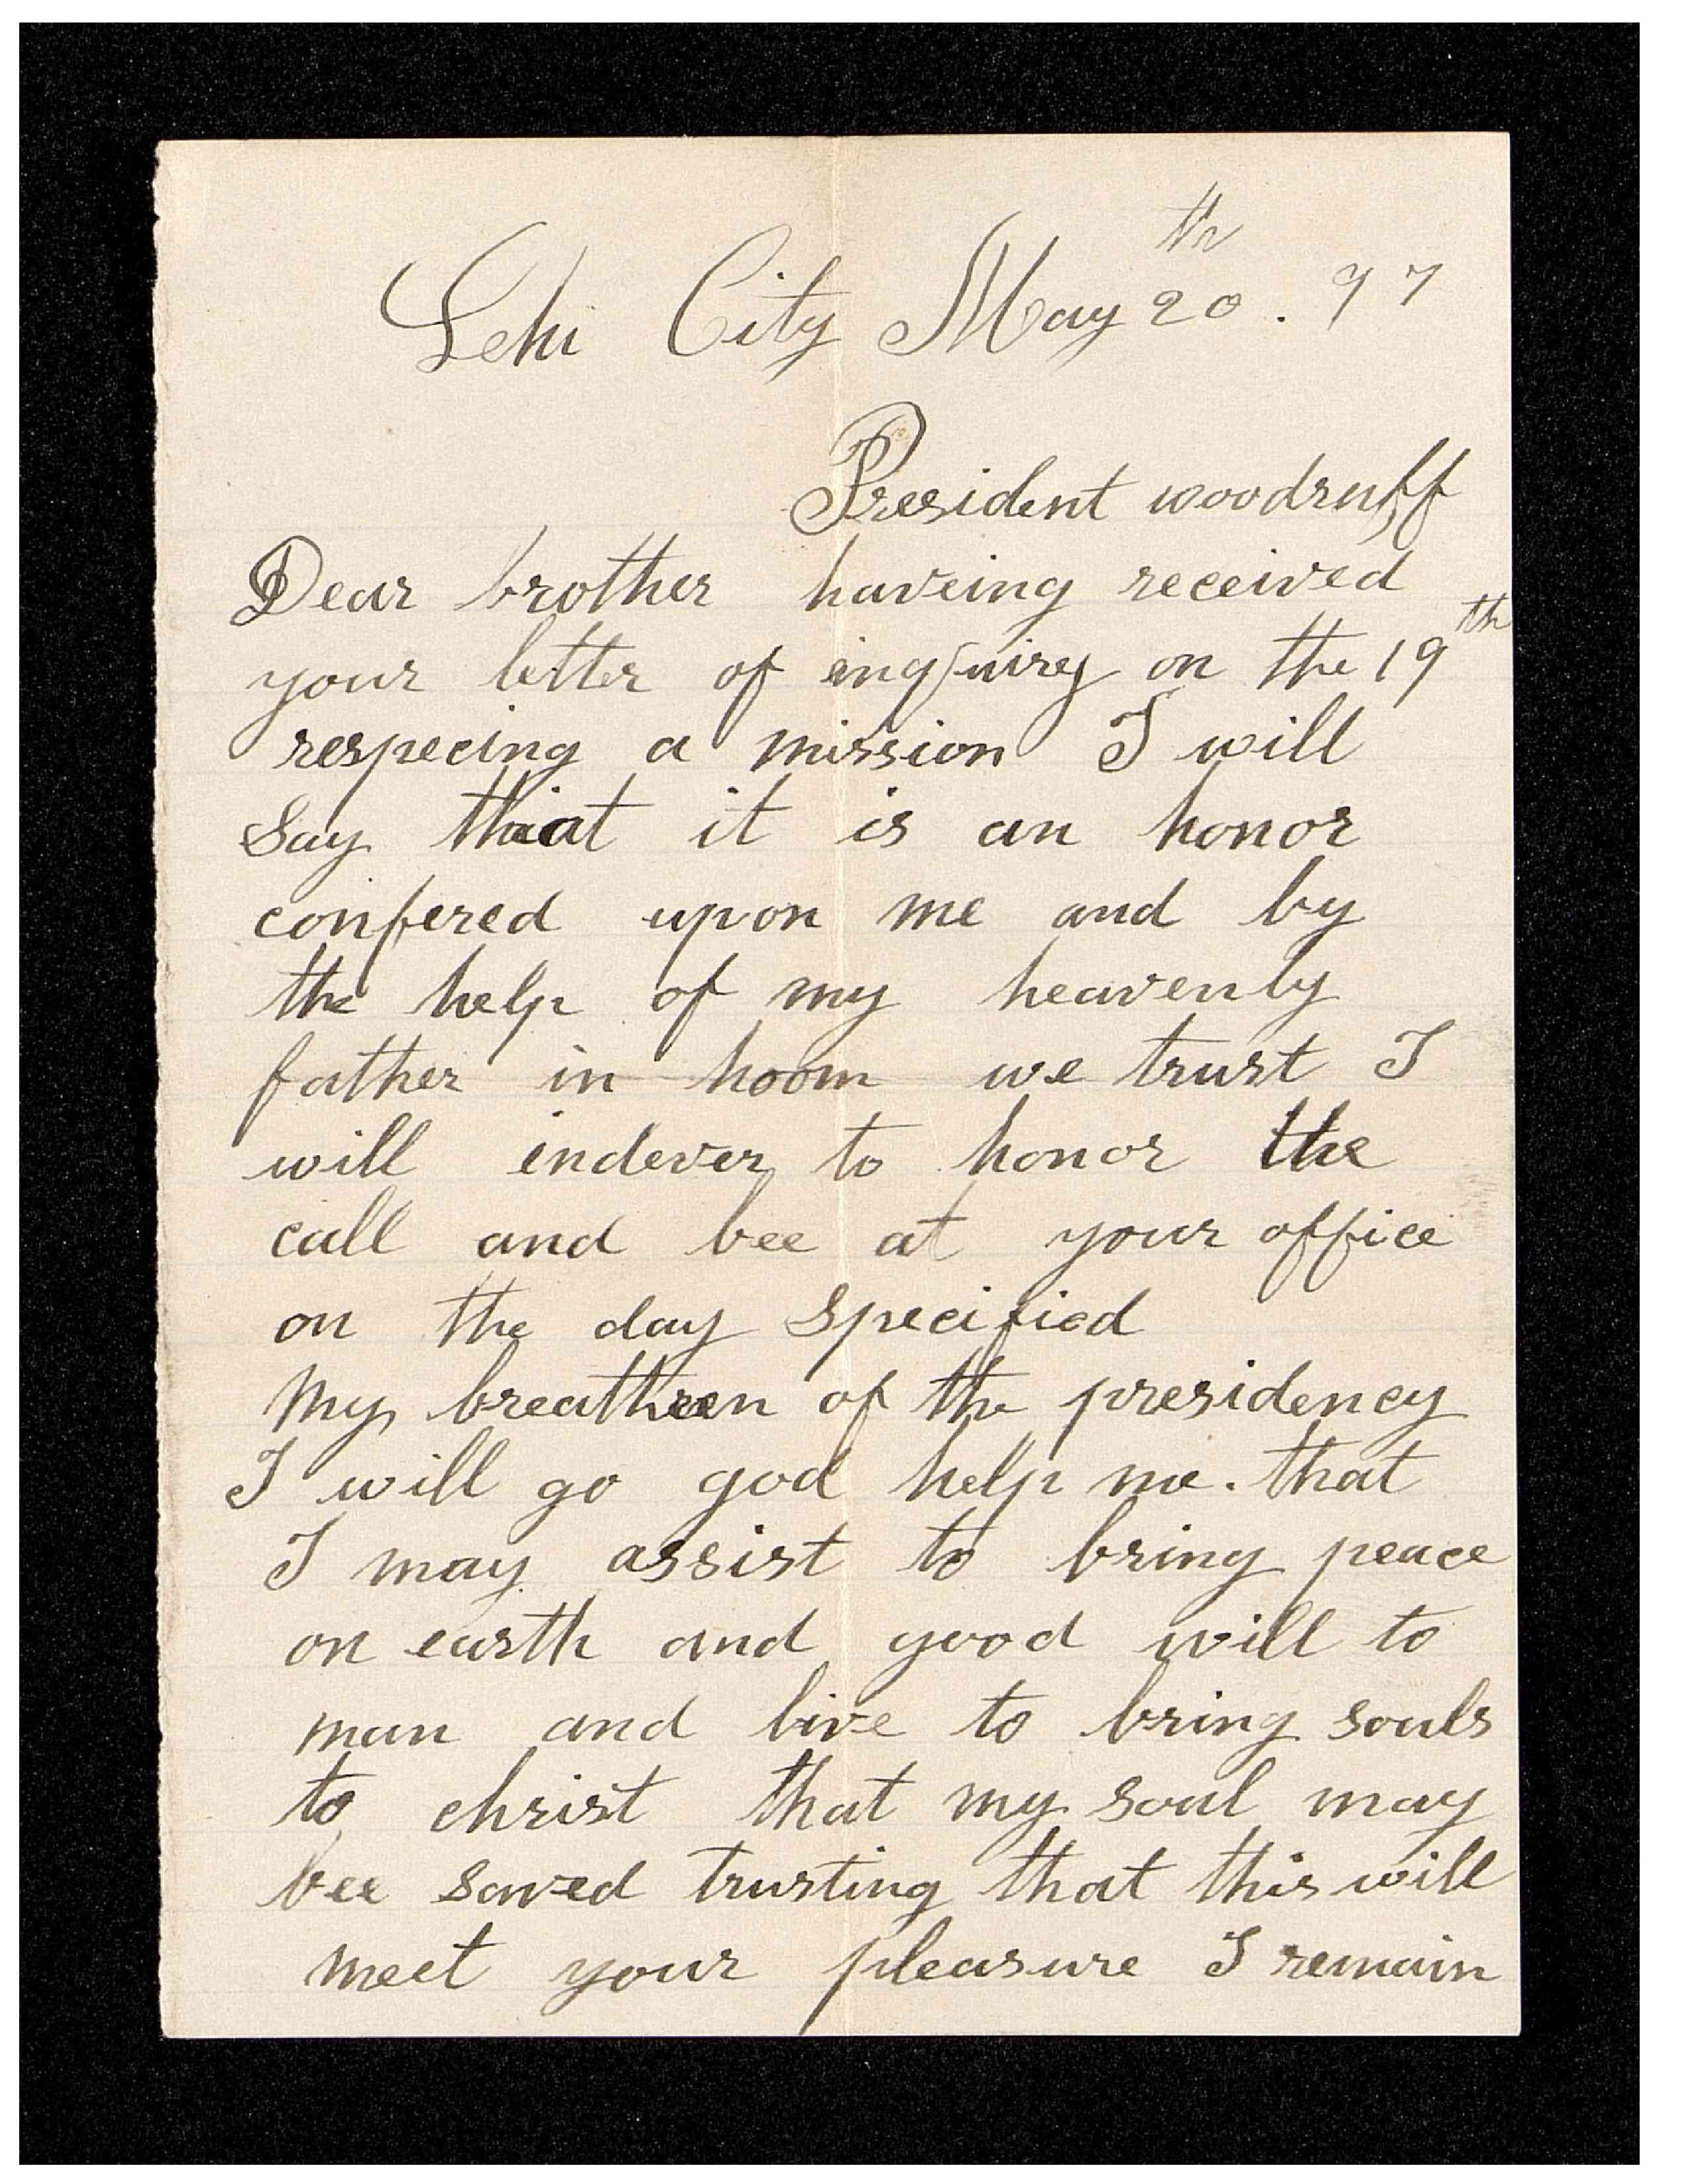 Lehi City May 20th. 97
President woodruff
Dear brother haveing received
your letter of inquirey on the 19th
respecing a mission I will
Say that it is an honor
confered upon me and by
the help of my heavenly
father in hoom we trust I
will indever to honor the
call and bee at your office
on the day specified
My breathren of the presidency
I will go god help me. that
I may assist to bring peace
on earth and good will to
man and live to bring souls
to christ that my soul may
bee saved trusting that this will
meet your pleasure I remain